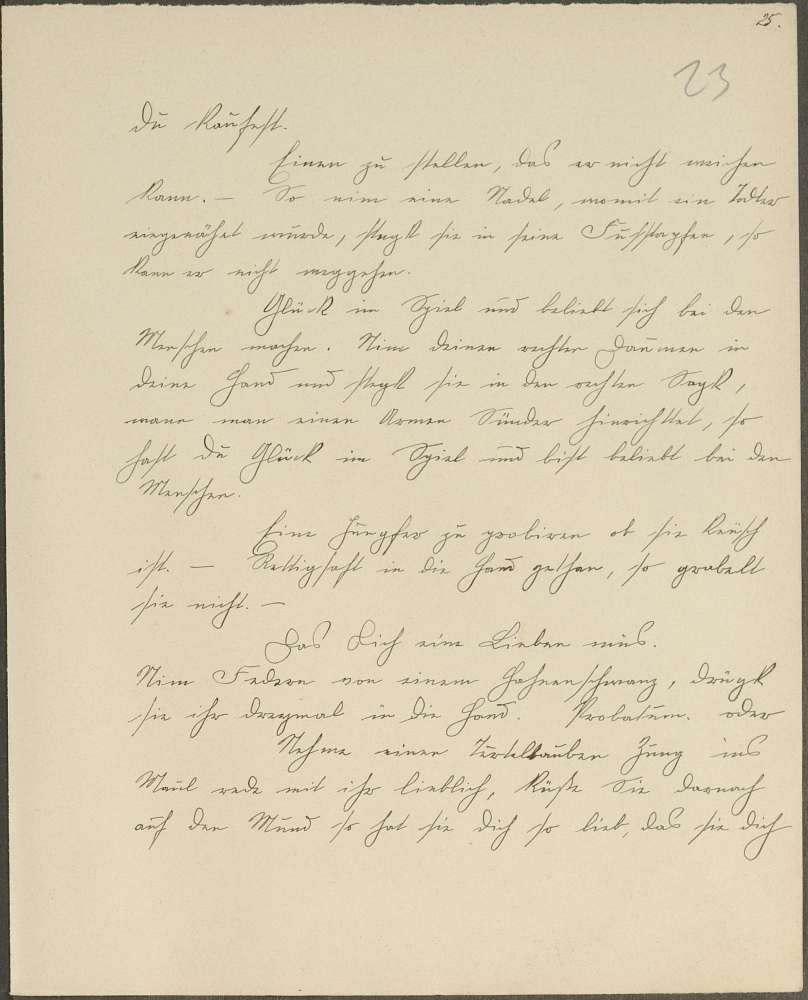 25.
23
du kaufest.
Einen zu stellen, das er nicht weichen
kann. — So nim eine Nadel, womit ein Todter
eingenähet wurde, stegk sie in seine Fußstapfen, so
kann er nicht weggehen.
Glück im Spiel und beliebt sich bei den
Menschen machen. Nim deinen rechten Daumen in
deine Hand und stegk sie in den rechten Sagk,
wann man einen Armen Sünder hinrichttet, so
hast du Glück im Spiel und bist beliebt bei den
Menschen.
Eine Jungfer zu probiren ob sie keusch
ist. — Rettigsaft in die Hand gethan, so grabelt
sie nicht. —
Das Dich eine Lieben mus.
Nim Federn von einem Hahnenschwanz, drügk
sie ihr dreymal in die Hand. Probatum. oder
Nehme einen Turteltauben Zung ins
Maul rede mit ihr lieblich, küße Sie darnach
auf den Mund so hat sie dich so lieb, das sie dich